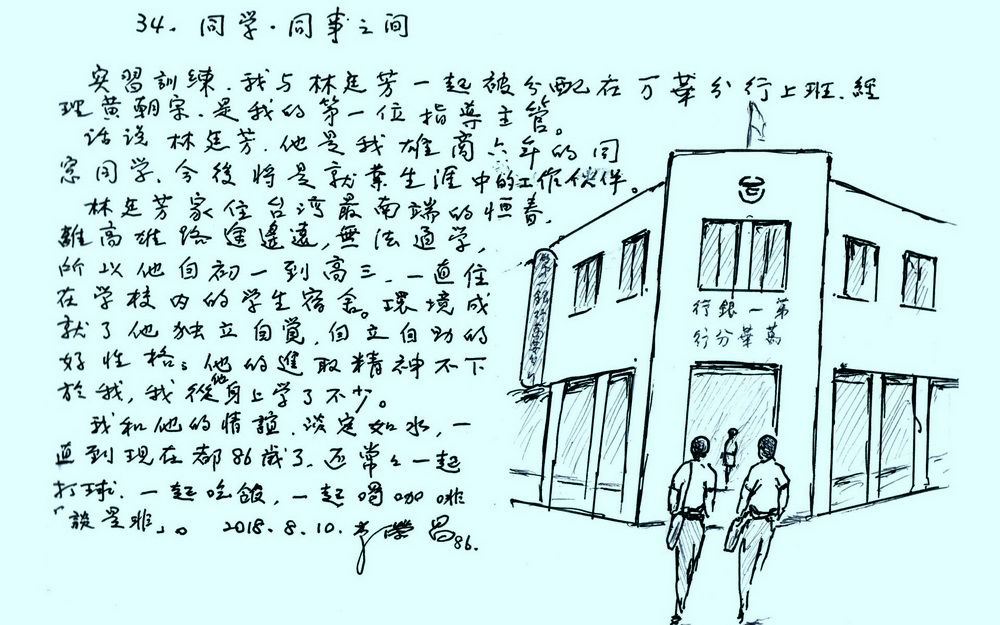 34. 同学·同事之间
实習訓練.我与林廷芳一起被分配在万華分行上班.經
理黄朝宗.是我的第一位指導主管。
话说林廷芳.他是我雄商六年的同
窓同学.今後將是就業生涯中的工作伙伴。
林廷芳家住台湾最南端的恒春.
離高雄路途遙遠,無法通学,
所以他自初一到高三.一直住
在学校内的学生宿舍。環境成
就了他独立自覚,自立自助的
好性格;他的進取精神不下
於我,我從他身上学了不少。
我和他的情誼.淡定如水,一
直到现在都86歲了.还常々一起
打球.一起吃飯,一起喝咖啡
「談是非」。 2018.8.10. 榮昌86.
第一銀行
萬華分行
第一銀行萬華分行